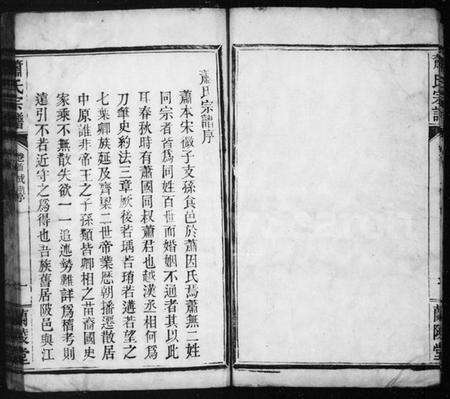 蕭氏宗譜序
蕭本宋微子支孫食邑於蕭因氏焉蕭無二姓
同宗者皆為同姓百世而婚姻不通者其以此
耳春秋時有蕭國同叔蕭君也越漢丞相何為
刀筆史約法三章厥後若瑀若琦若遘若望之
七葉卿族延及齊梁二世帝業歷朝播遷散居
中原誰非帝王之子孫類皆卿相之苗裔國史
家乘不無散失欲一一追遡勢難詳為稽考則
遠引不若近守之為得也吾族舊居陂邑與江
蕭氏宗譜
卷
一
蘭陵堂
蕭氏宗譜
蘭陵堂